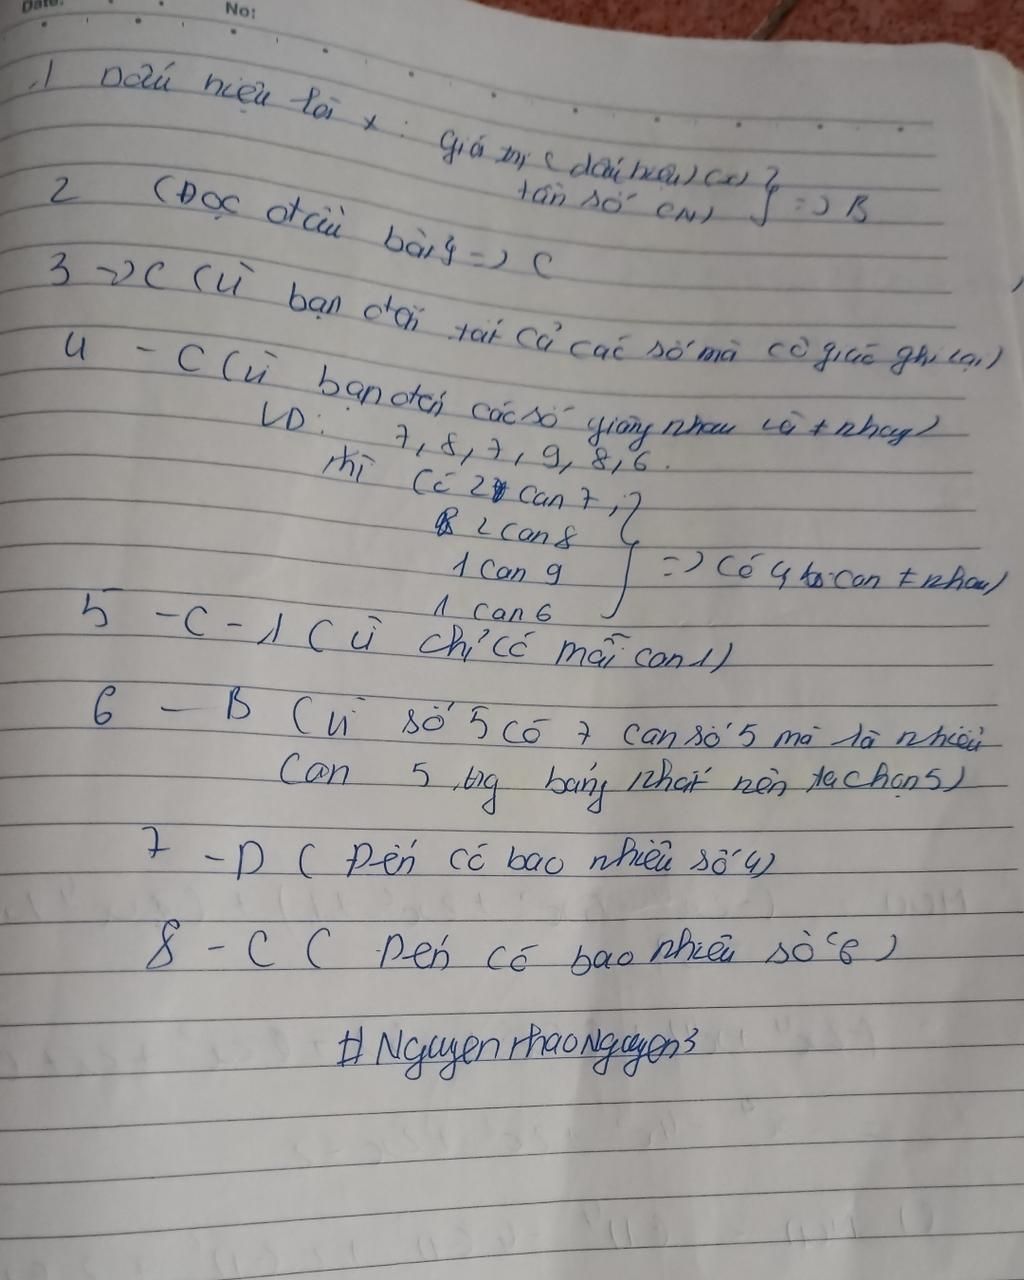 Date: No:
.1 Dấu hiệu là x : giá trị (dấu hiệu) (x)
tần số (N) } => B
2 (Đọc đầu bài) => C
3 => C (Vì bạn đếm tất cả các số mà cô giáo ghi lại)
4 - C (Vì bạn đếm các số giống nhau và ≠ nhau)
VD: 7, 8, 7, 9, 8, 6.
thì có 2 con 7,
2 con 8
1 con 9 } => có 4 con ≠ nhau)
1 con 6
5 - C - 1 (Vì chỉ có mỗi con 1)
6 - B (Vì số 5 có 7 con số 5 mà là nhiều
con 5 trg bảng nhất nên ta chọn 5)
7 - D (Đếm có bao nhiêu số 4)
8 - C (Đếm có bao nhiêu số 6)
#NguyenthaoNguyen3